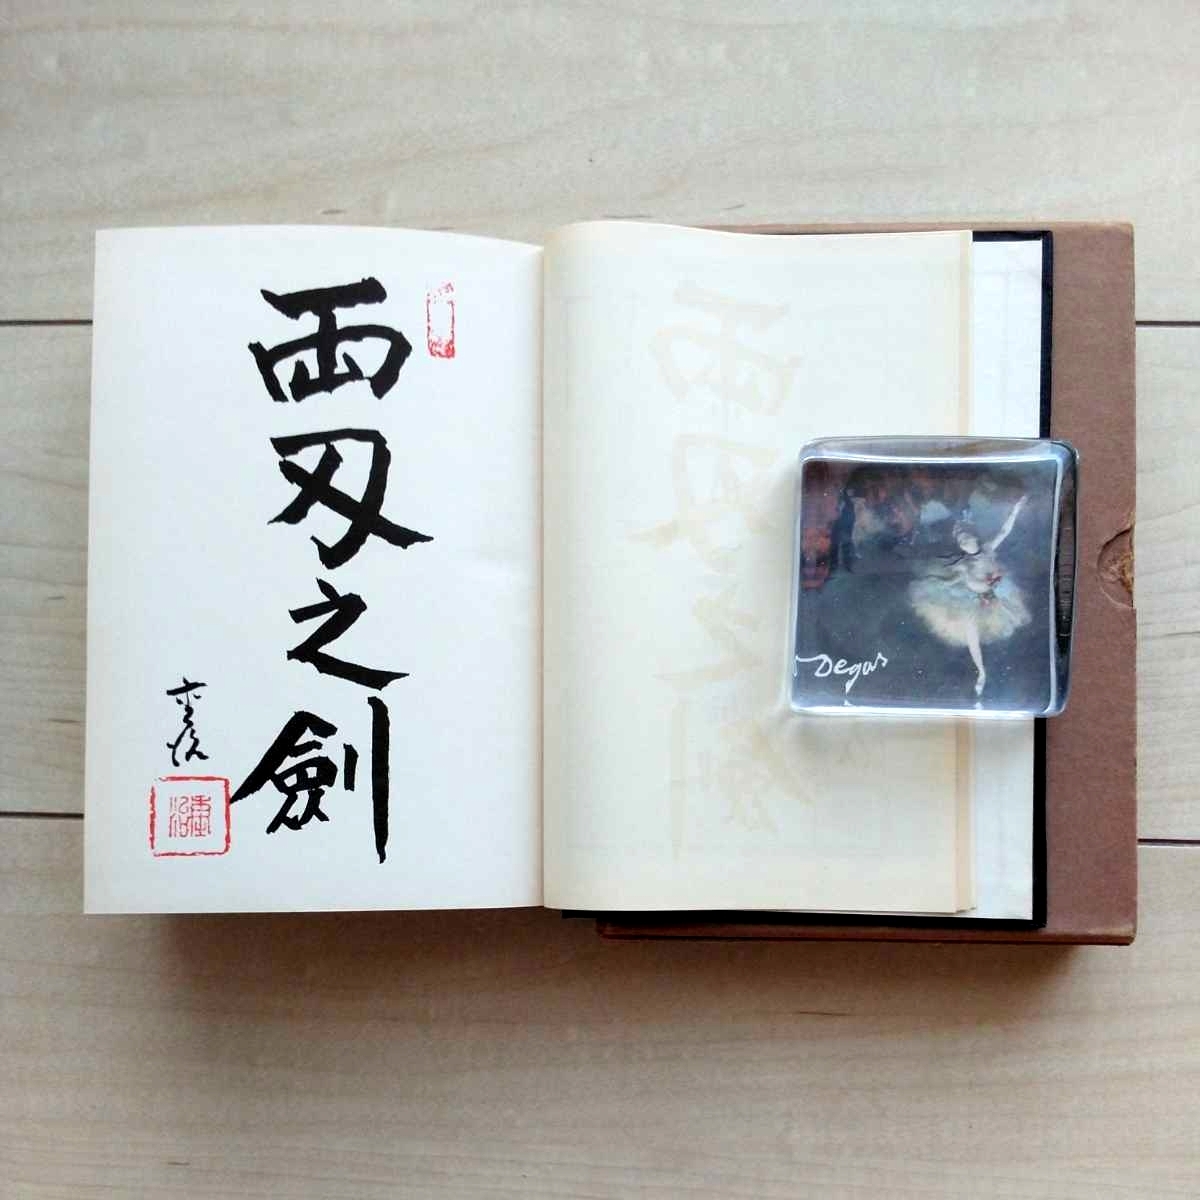 両刃之劍
Degas